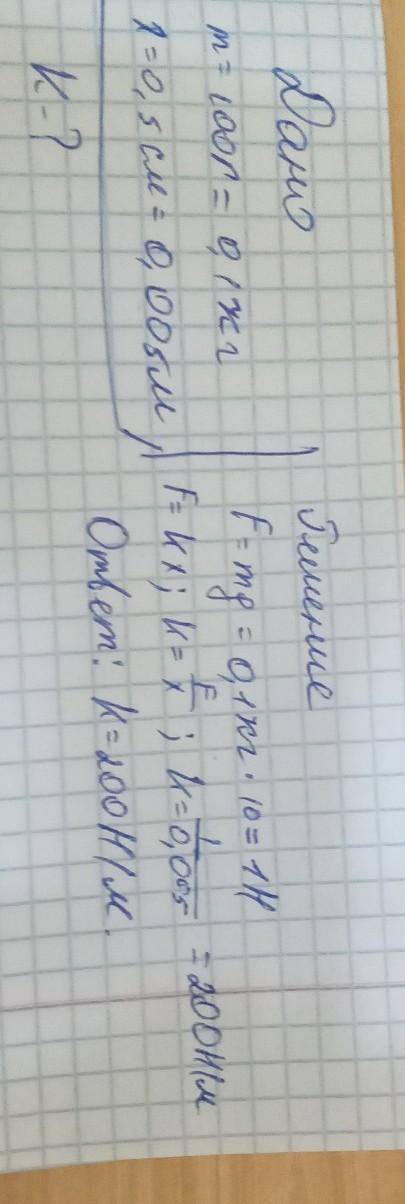 Дано
m = 100г = 0,1 кг
x = 0,5 см = 0,005 м
k - ?
Решение
F = mg = 0,1 кг · 10 = 1 Н
F = kx; k = F/x; k = 1/0,005 = 200 Н/м
Ответ: k = 200 Н/м.